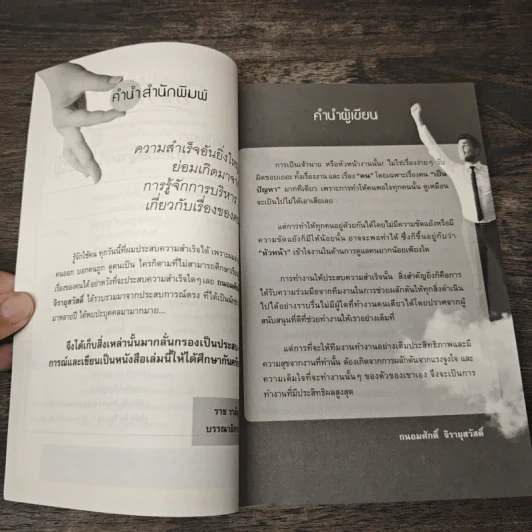 คำนำสำนักพิมพ์
ความสำเร็จอันยิ่งให
ย่อมเกิดมาจา
การรู้จักการบริหาร
เกี่ยวกับเรื่องของค
รู้จักใช้คน ทุกวันนี้ผมประสบความสำเร็จได้ เพราะผม
คนออก บอกคนถูก ดูคนเป็น ใครก็ตามที่ไม่สามารถศึกษาเรีย
เรื่องของคนได้อย่าหวังที่จะประสบความสำเร็จใดๆ เลย ถนอม
จิรายุสวัสดิ์ ได้รวบรวมมาจากประสบการณ์ตรง ที่ได้เป็นนัก
มาหลายปี ได้พบปะบุคคลมามากมาย...
จึงได้เก็บสิ่งเหล่านั้นมากลั่นกรองเป็นประส
การณ์และเขียนเป็นหนังสือเล่มนี้ให้ได้ศึกษากัน
ราช
บรรณาธิก
คำนำผู้เขียน
การเป็นเจ้านาย หรือหัวหน้างานนั้น! ไม่ใช่เรื่องง่ายๆ
ผิดชอบเยอะ ทั้งเรื่องงาน และ เรื่อง "คน" โดยเฉพาะเรื่องคน "เป็น
ปัญหา" มากทีเดียว เพราะการทำให้คนพอใจทุกคนนั้น ดูเหมือน
จะเป็นไปไม่ได้เอาเสียเลย
แต่การทำให้คนอยู่ด้วยกันได้โดยไม่มีความขัดแย้งหรือมี
ความขัดแย้งก็มีให้น้อยนั้น อาจจะพอทำได้ ซึ่งก็ขึ้นอยู่กับว่า
"หัวหน้า" เข้าใจงานในด้านการดูแลคนมากน้อยเพียงใด
การทำงานให้ประสบความสำเร็จนั้น สิ่งสำคัญยิ่งก็คือการ
ได้รับความร่วมมือจากทีมงานในการช่วยผลักดันให้ทุกสิ่งดำเนิน
ไปได้อย่างราบรื่น ไม่มีผู้ใดที่ทำงานคนเดียวได้โดยปราศจากผู้
สนับสนุนที่ดีที่ช่วยทำงานให้เราอย่างเต็มที่
แต่การที่จะให้ทีมงานทำงานอย่างเต็มประสิทธิภาพและมี
ความสุขจากงานที่ทำนั้น ต้องเกิดจากการผลักดันจากแรงจูงใจ และ
ความเต็มใจที่จะทำงานนั้นๆ ของตัวของเขาเอง จึงจะเป็นการ
ทำงานที่มีประสิทธิผลสูงสุด
ถนอมศักดิ์ จิรายุสวัสดิ์